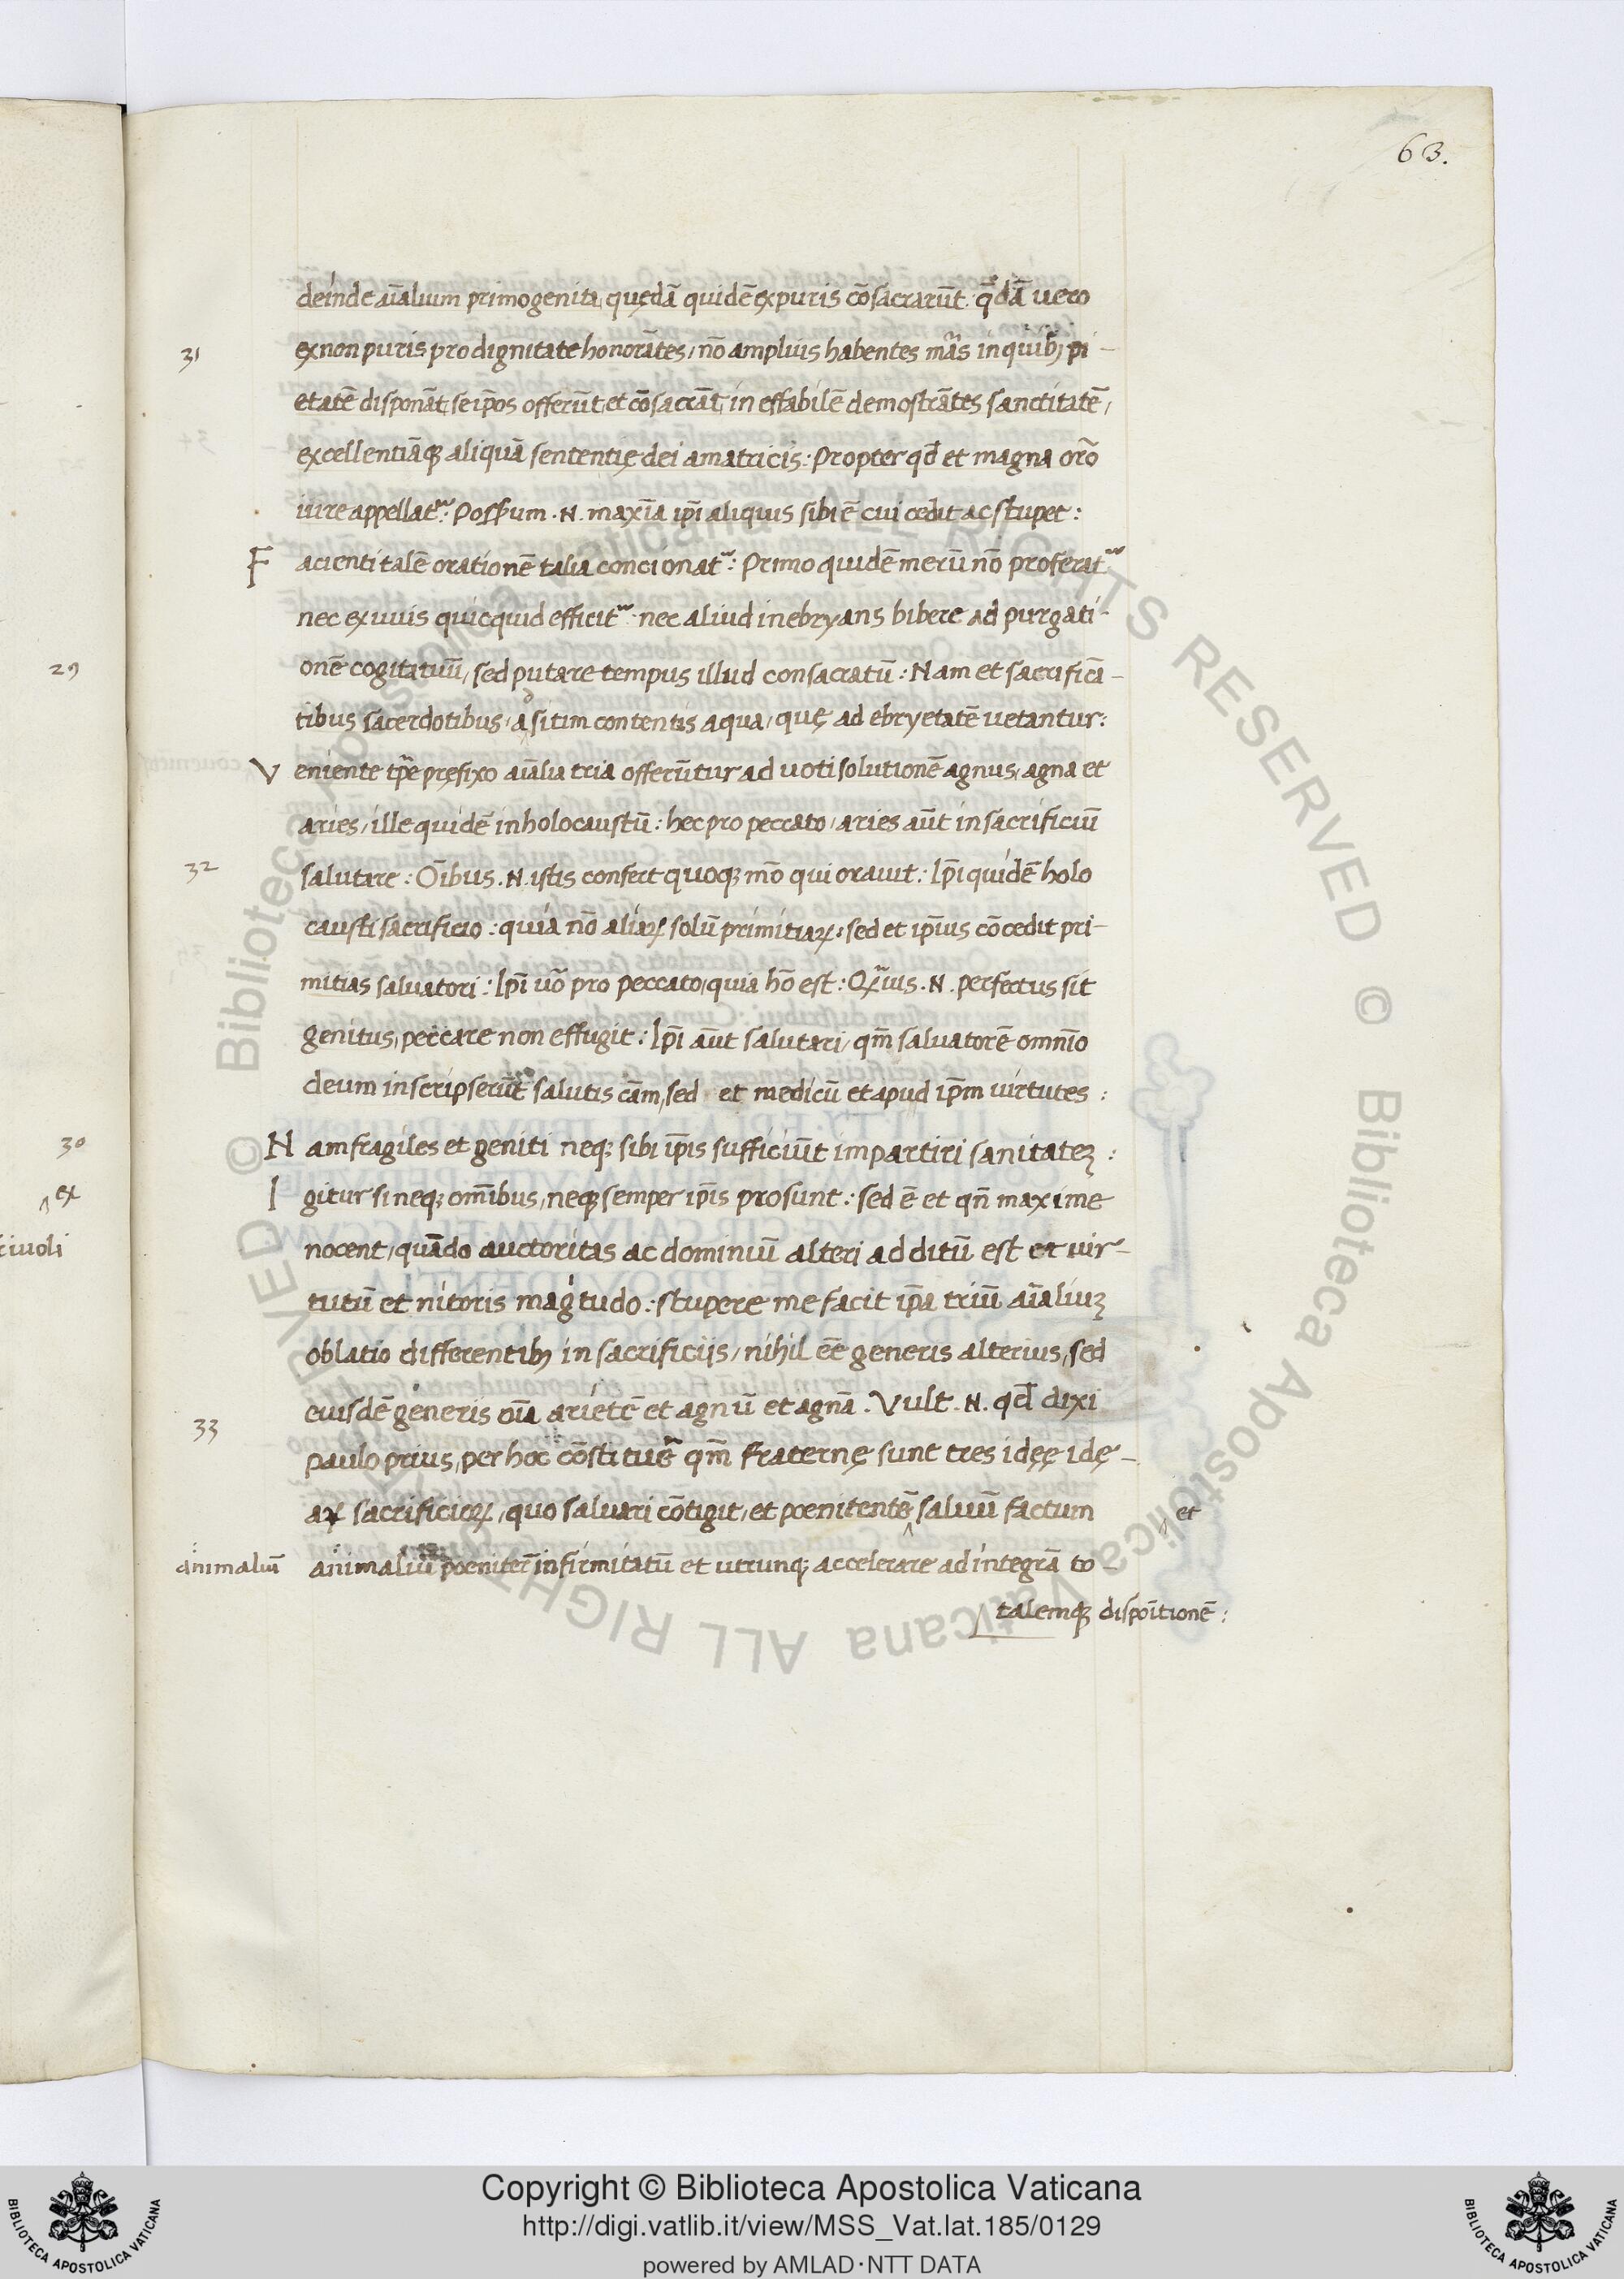 63.
deinde aı̄aluum primogenita, quędā quidē ex puris cōsacrarūt. q̄dā uero
31
ex non puris pro dignitate honorātes, nō amplius habentes mās in quibȝ pi-
etatē disponāt, se ip̄os offerūt, et cōsacrāt, in effabilē demostrātes sanctitatē,
excellentiāqꝫ aliquā sententię dei amatricis: Propter qđ et magna orō
iure appellat᷑: Possum .N. maxı̄a ip̄i aliquis sibi ē cui cedit ac stupet:
Facienti talē orationē talia concionat᷑: Primo quidē merū nō proferat᷑
nec ex uuis quicquid efficit᷑. nec aliud inebryans bibere ad purgati-
29
onē cogitatuū, sed putare tempus illud consacratū: Nam et sacrificā-
tibus sacerdotibus, a sitim contentis aqua, quę ad ebryetatē uetantur:
Veniente tp̄e pręfixo aı̄alia tria offerūtur ad uoti solutionē agnus, agna et
aries, ille quidē in holocaustū: hec pro peccato, aries aūt in sacrificiū
32
salutare: Oı̄bus .N. istis confert quoqꝫ mō qui orauit: Ip̄i quidē holo
causti sacrificio: quia nō aliaꝝ solū primitiaꝝ: sed et ip̄ius cōcedit pri-
mitias saluatori: Ip̄i uō pro peccato, quia hō est: Qꝫuis .N. perfectus sit
genitus, peccare non effugit: Ip̄i aūt salutari, qm̄ saluatorē omnīo
deum inscripserūt salutis cām, sed et medicū et apud ip̄m uirtutes:
30
Nam fragiles et geniti neqꝫ sibi ip̄is sufficiūt impartiri sanitateꝫ:
ex
Igitur si neqꝫ omı̄bus, neqꝫ semper ip̄is prosunt: sed ē et qn̄ maxime
tiuoli
nocent, quādo auctoritas ac dominiū alteri additū est et uir-
tutū et nitoris magˈtudo: stupere me facit ip̄a triū aı̄aliuꝫ
oblatio differentibȝ in sacrificijs, nihil eē generis alterius, sed
euisdē generis oı̄a arietē et agnū et agnā. Vult .N. qđ dixi
33
paulo prius, per hoc cōstituē᷑ qm̄ fraternę sunt tres idęę idę-
aꝝ sacrificioꝝ, quo saluari cōtigit, et poenitentē saluū factum
et
animaliū
animaliū poeniter̄ infirmitatū et utrunqꝫ accelerare ad integrā to-
talemqꝫ dispoı̄tionē:
Copyright © Biblioteca Apostolica Vaticana
http://digi.vatlib.it/view/MSS_Vat.lat.185/0129
powered by AMLAD·NTT DATA
BIBLIOTECA APOSTOLICA VATICANA
BIBLIOTECA APOSTOLICA VATICANA
© Biblioteca Apostolica Vaticana ALL RIGHTS RESERVED © Biblioteca Apostolica Vaticana ALL RIGHTS RESERVED